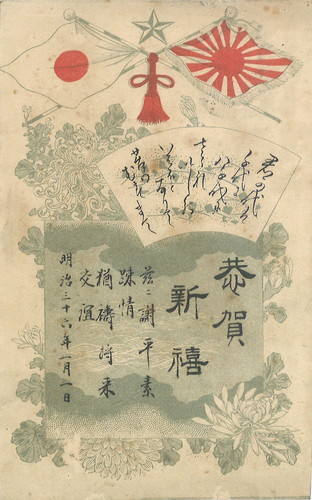 君か代は
千代に
八千代に
さゝれ
いしの
いはほと
なりて
苔のむすまて
恭賀
新禧
茲ニ謝平素
疎情
猶禱将来
交誼
明治三十六年一月一日